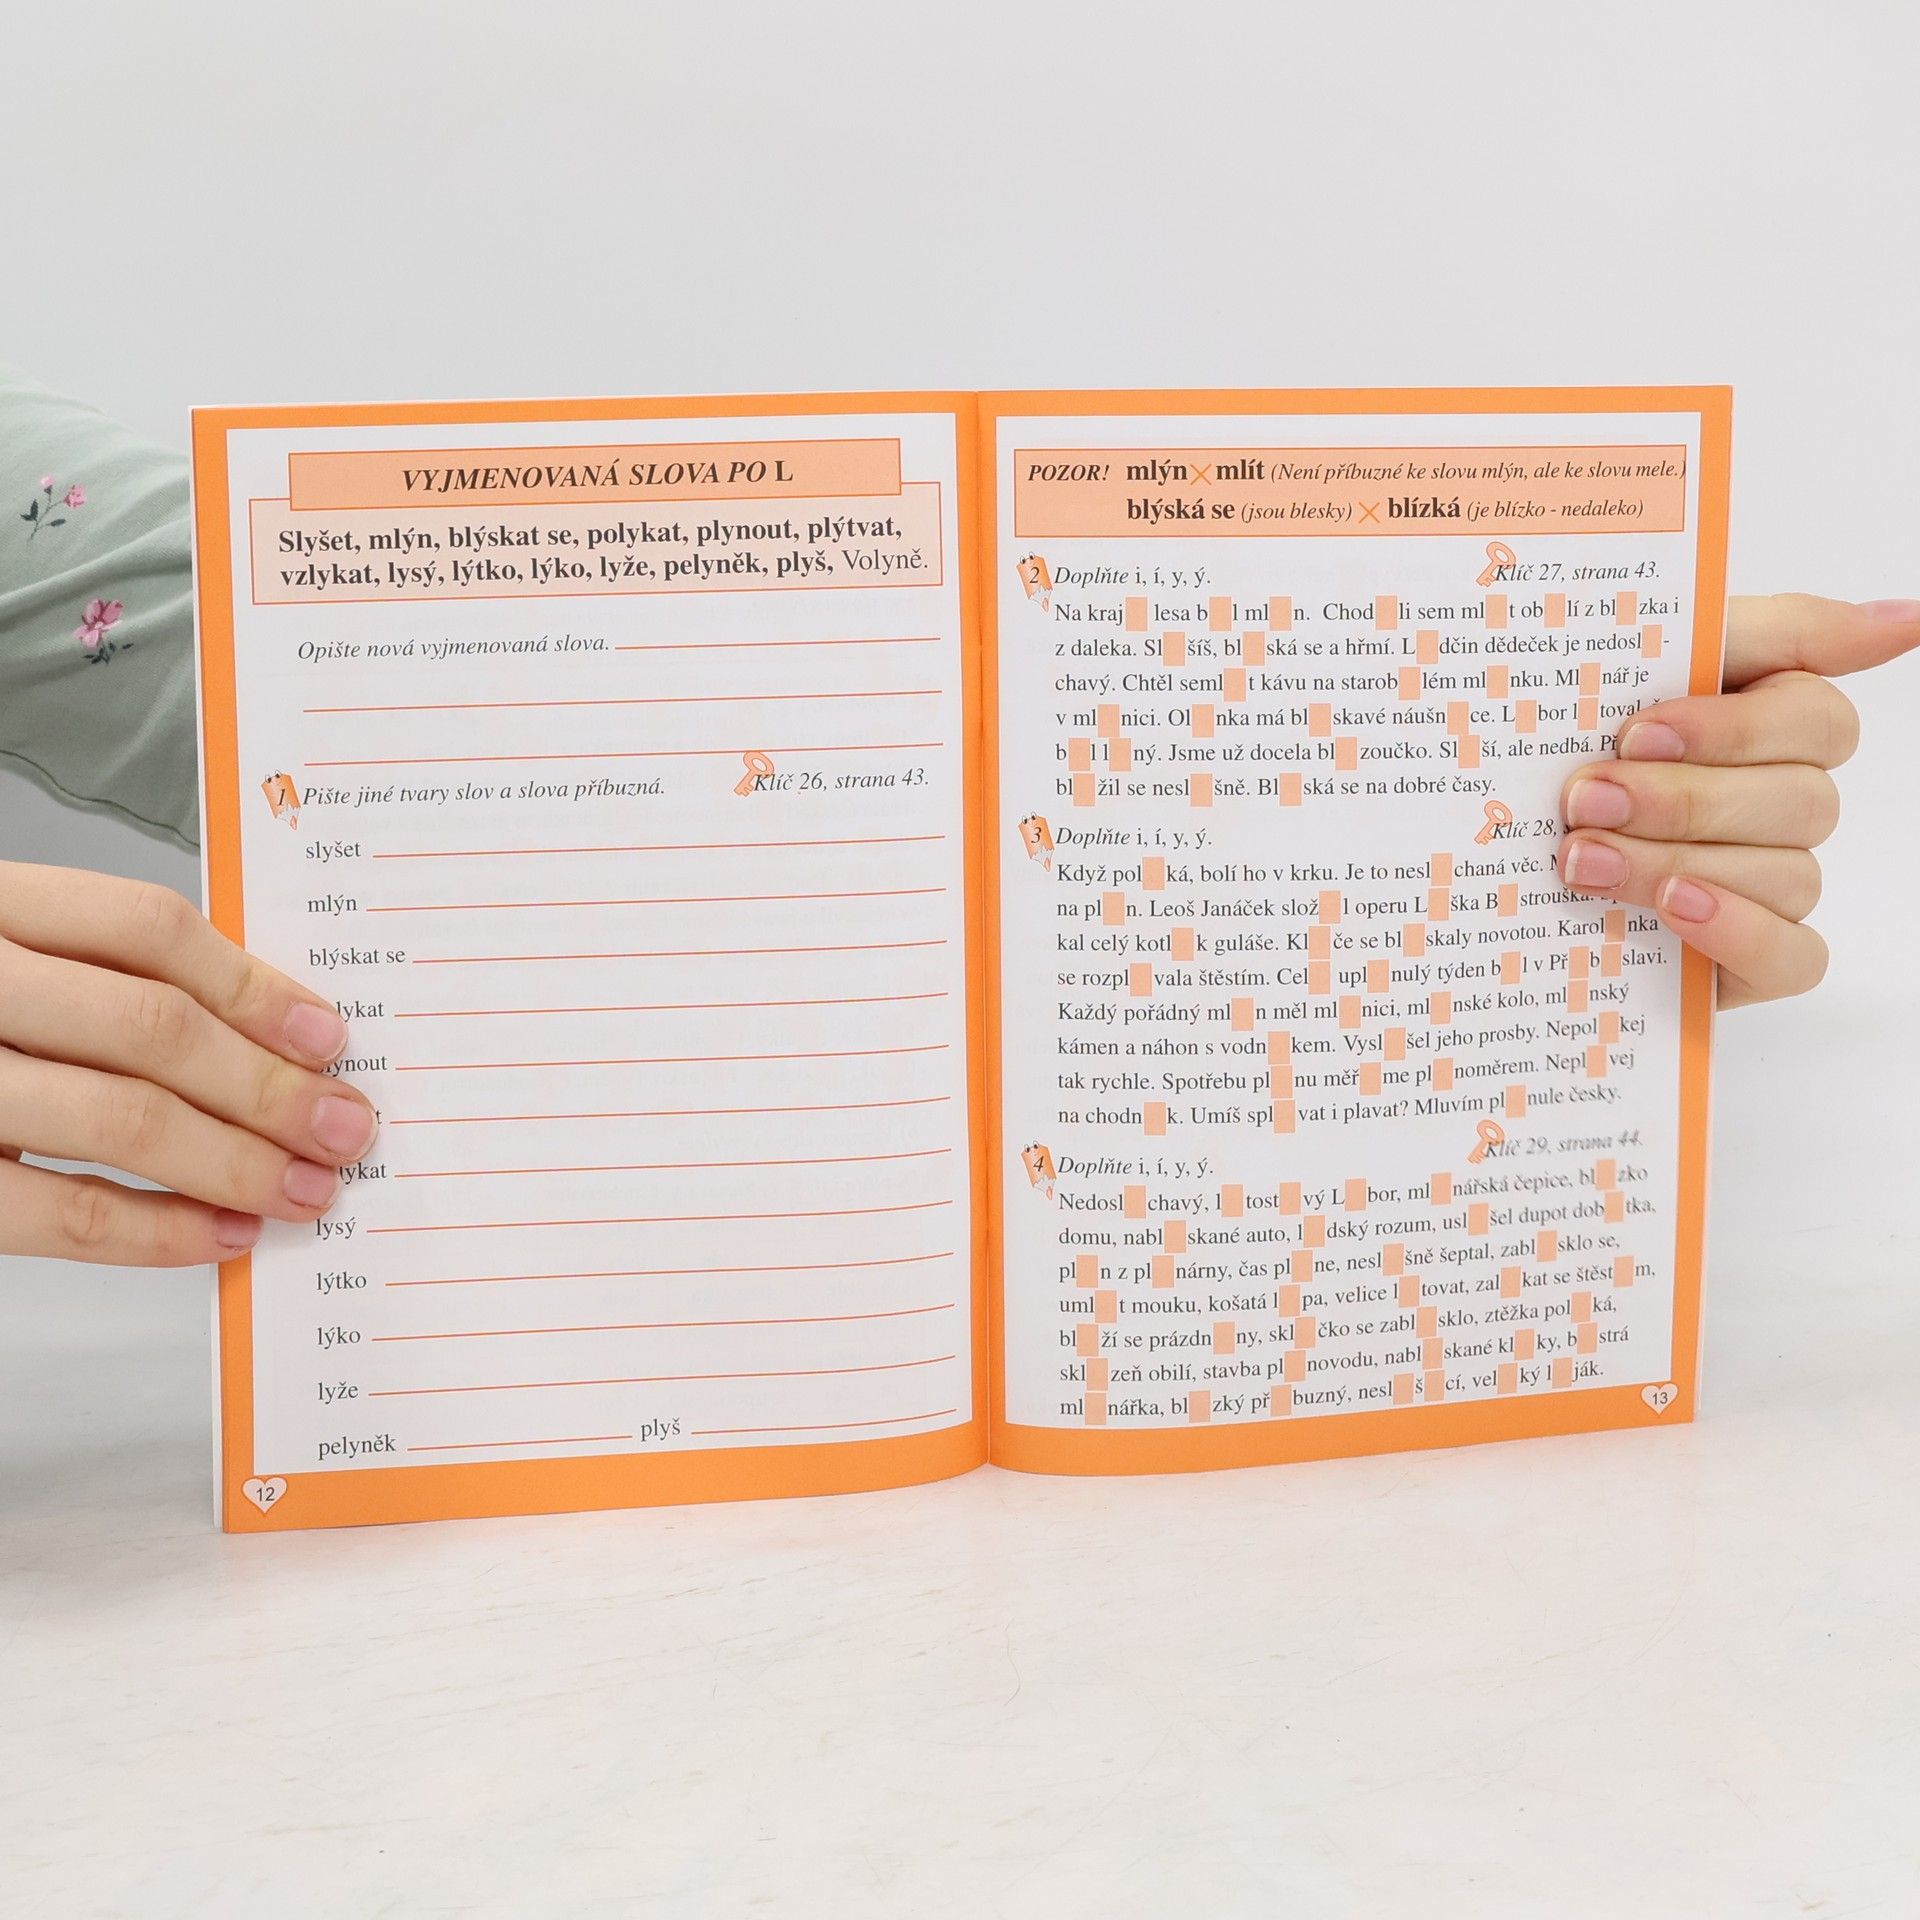 VYJMENOVANÁ SLOVA PO L
Slyšet, mlýn, blýskat se, polykat, plynout, plýtvat,
vzlykat, lysý, lýtko, lýko, lyže, pelyněk, plyš, Volyně.
Opište nová vyjmenovaná slova.
1 Pište jiné tvary slov a slova příbuzná. Klíč 26, strana 43.
slyšet
mlýn
blýskat se
lykat
ynout
t
lykat
lysý
lýtko
lýko
lyže
pelyněk plyš
12
POZOR! mlýn × mlít (Není příbuzné ke slovu mlýn, ale ke slovu mele.)
blýská se (jsou blesky) × blízká (je blízko - nedaleko)
2 Doplňte i, í, y, ý. Klíč 27, strana 43.
Na kraj lesa b l ml n. Chod li sem ml t ob lí z bl zka i
z daleka. Sl šíš, bl ská se a hřmí. L dčin dědeček je nedosl -
chavý. Chtěl seml t kávu na starob lém ml nku. Ml nář je
v ml nici. Ol nka má bl skavé náušn ce. L bor l toval,
b l l ný. Jsme už docela bl zoučko. Sl ší, ale nedbá. Př
bl žil se nesl šně. Bl ská se na dobré časy.
3 Doplňte i, í, y, ý. Klíč 28,
Když pol ká, bolí ho v krku. Je to nesl chaná věc.
na pl n. Leoš Janáček slož l operu L ška B strouška.
kal celý kotl k guláše. Kl če se bl skaly novotou. Karol nka
se rozpl vala štěstím. Cel upl nulý týden b l v Př b slavi.
Každý pořádný ml n měl ml nici, ml nské kolo, ml nský
kámen a náhon s vodn kem. Vysl šel jeho prosby. Nepol kej
tak rychle. Spotřebu pl nu měř me pl noměrem. Nepl vej
na chodn k. Umíš spl vat i plavat? Mluvím pl nule česky.
4 Doplňte i, í, y, ý. Klíč 29, strana 44.
Nedosl chavý, l tost vý L bor, ml nářská čepice, bl zko
domu, nabl skané auto, l dský rozum, usl šel dupot dob tka,
pl n z pl nárny, čas pl ne, nesl šně šeptal, zabl sklo se,
uml t mouku, košatá l pa, velice l tovat, zal kat se štěst m,
bl ží se prázdn ny, skl čko se zabl sklo, ztěžka pol ká,
skl zeň obilí, stavba pl novodu, nabl skané kl ky, b strá
ml nářka, bl zký př buzný, nesl š cí, vel ký l ják.
13